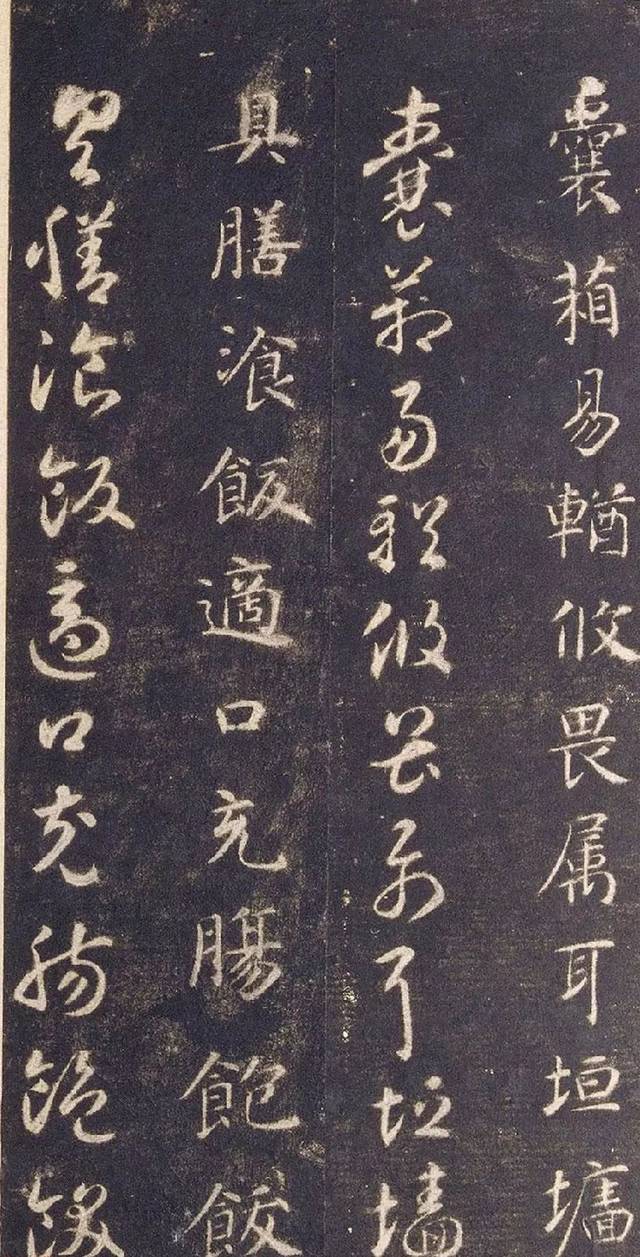 囊箱易輶攸畏属耳垣墻
囊箱易輶攸畏属耳垣墻
具膳湌飯適口充腸飽飫
具膳湌飯適口充腸飽飫